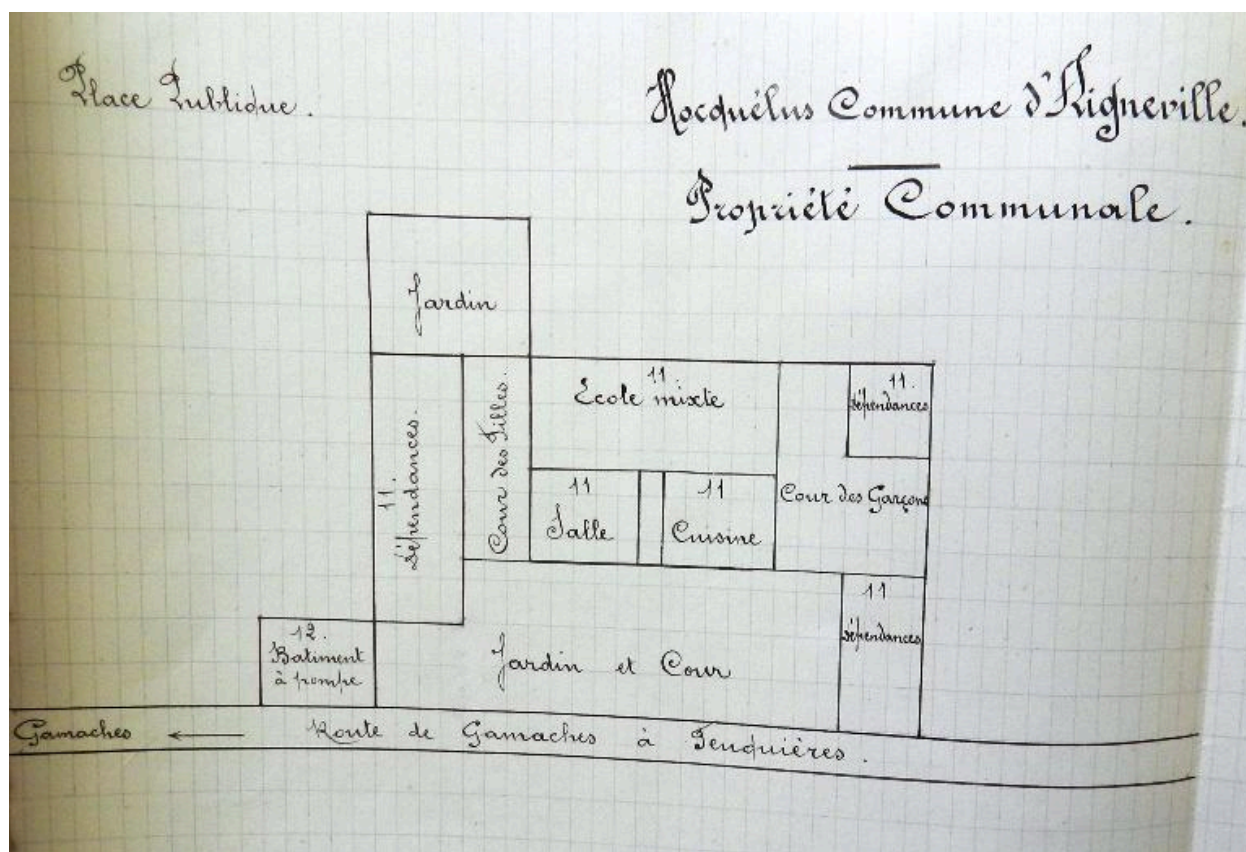 Place Publique.
Hocquélus Commune d'Aigneville.
Propriété Communale.
Jardin
11.
Dépendances.
Cour des Filles.
11
Ecole mixte
11.
dépendances
11
Salle
11
Cuisine
Cour des Garçons
11
dépendances
12.
Batiment
à pompe
Jardin et Cour
Gamaches
Route de Gamaches à Feuquières.